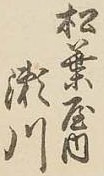 松葉屋内
瀬川